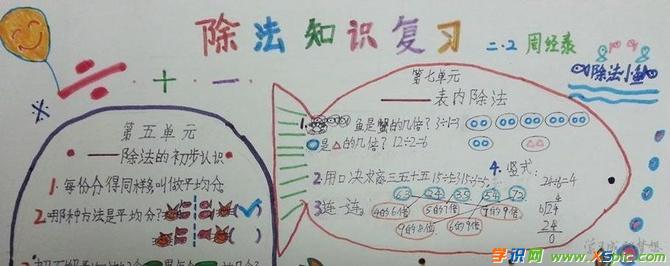 除法知识复习
二.2 周经录
除法小鱼
第五单元
除法的初步认识
1.每份分得同样多叫做平均分。
2.哪种方法是平均分?
第七单元
表内除法
1. 鱼是蟹的几倍? 3÷1=3
是△的几倍? 12÷2=6
2.用口决求商 三五十五 15÷5=3 15÷3=5
3.连一连。
4.竖式:
24÷6=4
4
6 24
24
0
63 24 35 54 72
4的6倍 5的7倍 7的9倍
9的8倍 6的9倍
学习成就梦想
学识网 www.xspic.com